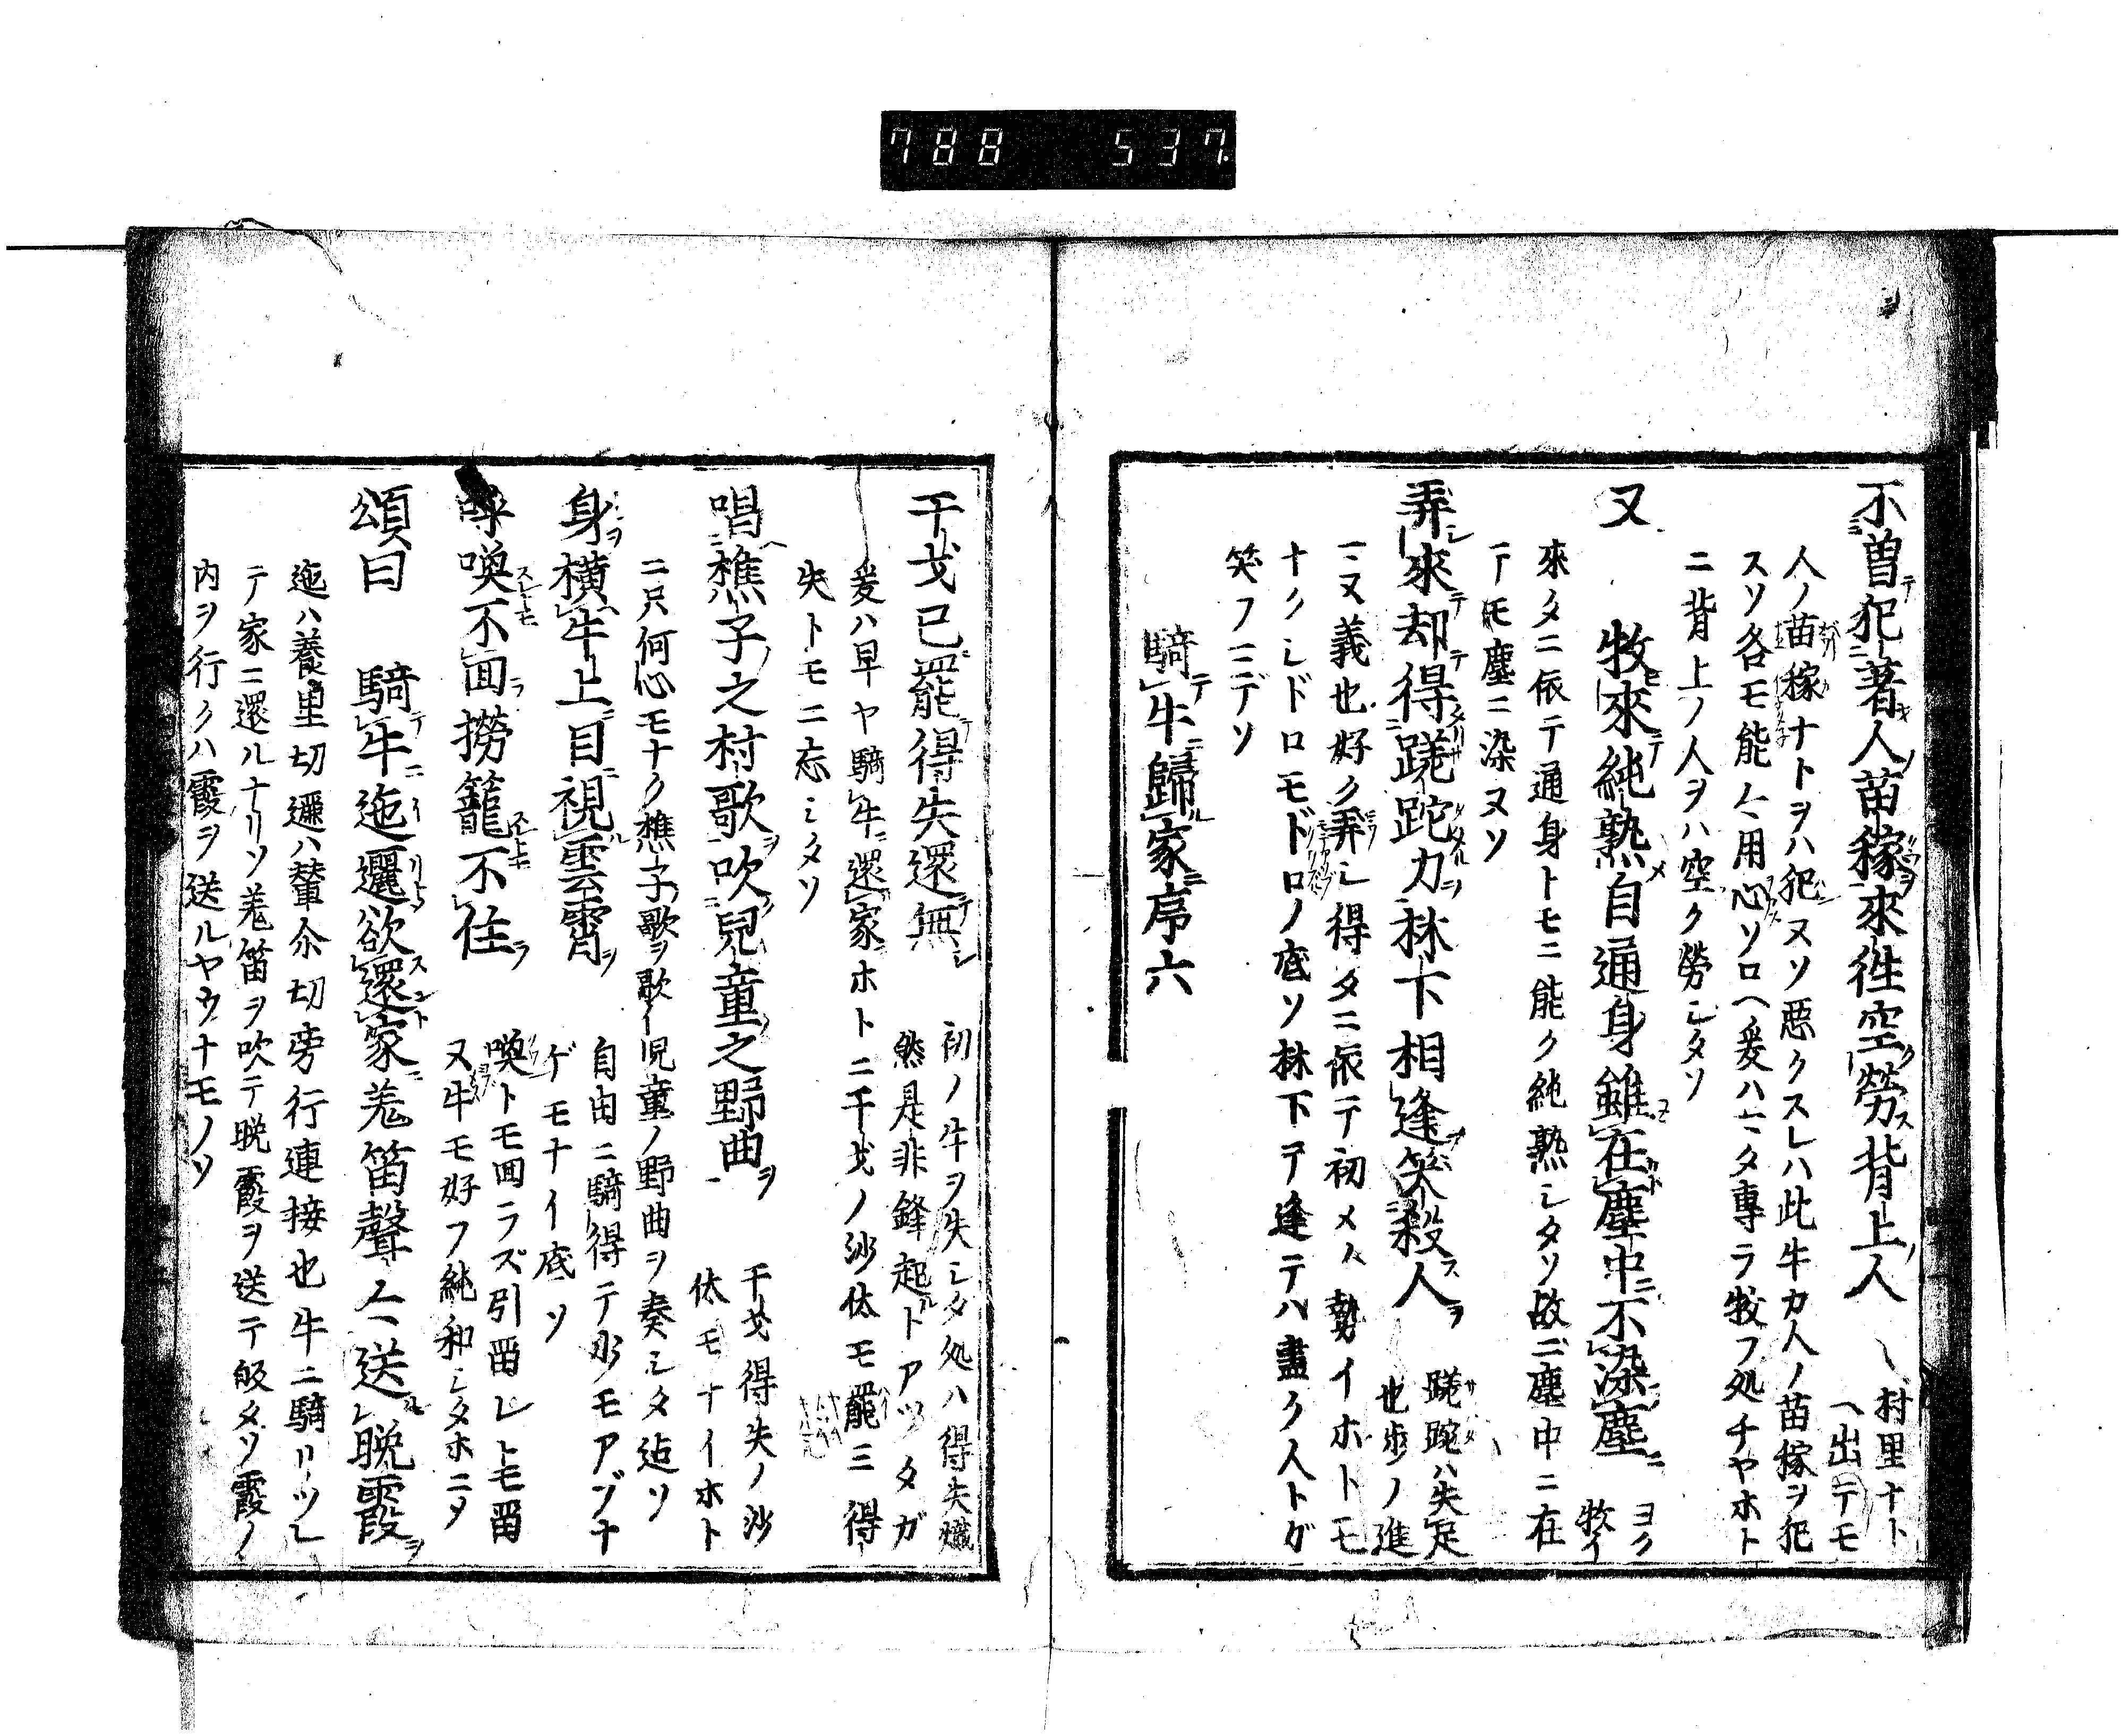 788 537
不曽犯著人苗稼來徃空勞背上人 村里ナト
ヘ出テモ
人ノ苗稼ナトヲハ犯ヌソ悪クスレハ此牛カ人ノ苗稼ヲ犯
スソ各モ能〻用心ソロヘ爰ハ一タ專ラ牧フ処チヤホト
ニ背上ノ人ヲハ空ク勞シタソ
又 牧來純熟自通身雖在塵中不染塵 ヨク
牧イ
來タニ依テ通身トモニ能ク純熟シタソ故ニ塵中ニ在
テモ塵ニ染ヌソ
弄來却得蹉跎力林下相逢笑殺人 蹉跎ハ失足
也歩ノ進
ニヌ義也好ク弄シ得タニ依テ初メハ勢イホトモ
ナクシドロモドロノ底ソ林下テ逢テハ盡ク人トガ
笑フニデソ
騎牛歸家序六
干戈已罷得失還無 初ノ牛ヲ失シタ処ハ得失熾
然是非鋒起トアツタガ
爰ハ早ヤ騎牛還家ホトニ干戈ノ沙汰モ罷ミ得
失トモニ忘シタソ
唱樵子之村歌吹兒童之野曲 干戈得失ノ沙
汰モナイホト
ニ只何心モナク樵子歌ヲ歌イ児童ノ野曲ヲ奏シタ迠ソ
身横牛上目視雲霄 自由ニ騎得テ少モアブナ
ゲモナイ底ソ
呼喚不囬撈籠不住 喚トモ囬ラズ引畄レトモ畄
ヌ牛モ好フ純和シタホニタ
頌曰 騎牛迤邐欲還家羌笛聲〻送晩霞
迤ハ養里切邐ハ輦尒切旁行連接也牛ニ騎リツレ
テ家ニ還ルナリソ羌笛ヲ吹テ晩霞ヲ送テ皈タソ霞ノ
内ヲ行クハ霞ヲ送ルヤウナモノソ